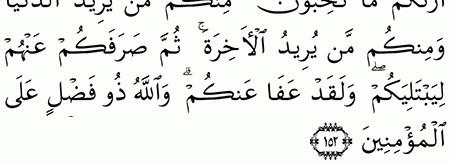 أَرَىٰكُم مَّا تُحِبُّونَ ۚ مِنكُم مَّن يُرِيدُ ٱلدُّنْيَا
وَمِنكُم مَّن يُرِيدُ ٱلْأَخِرَةَ ۚ ثُمَّ صَرَفَكُمْ عَنْهُمْ
لِيَبْتَلِيَكُمْ ۖ وَلَقَدْ عَفَا عَنكُمْ ۗ وَٱللَّهُ ذُو فَضْلٍ عَلَى
ٱلْمُؤْمِنِينَ ١٥٢